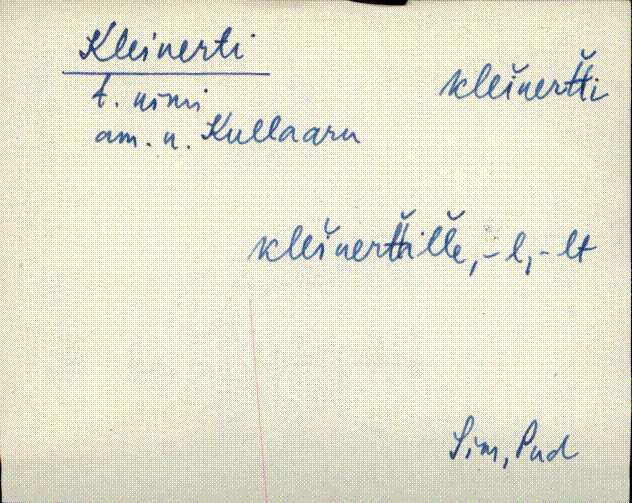 Kleinerti
t. nimi
am. n. Kullaaru
kleĭnertt̆i
kleĭnertt̆il̆l̆e, -l, -lt
Sim, Pud